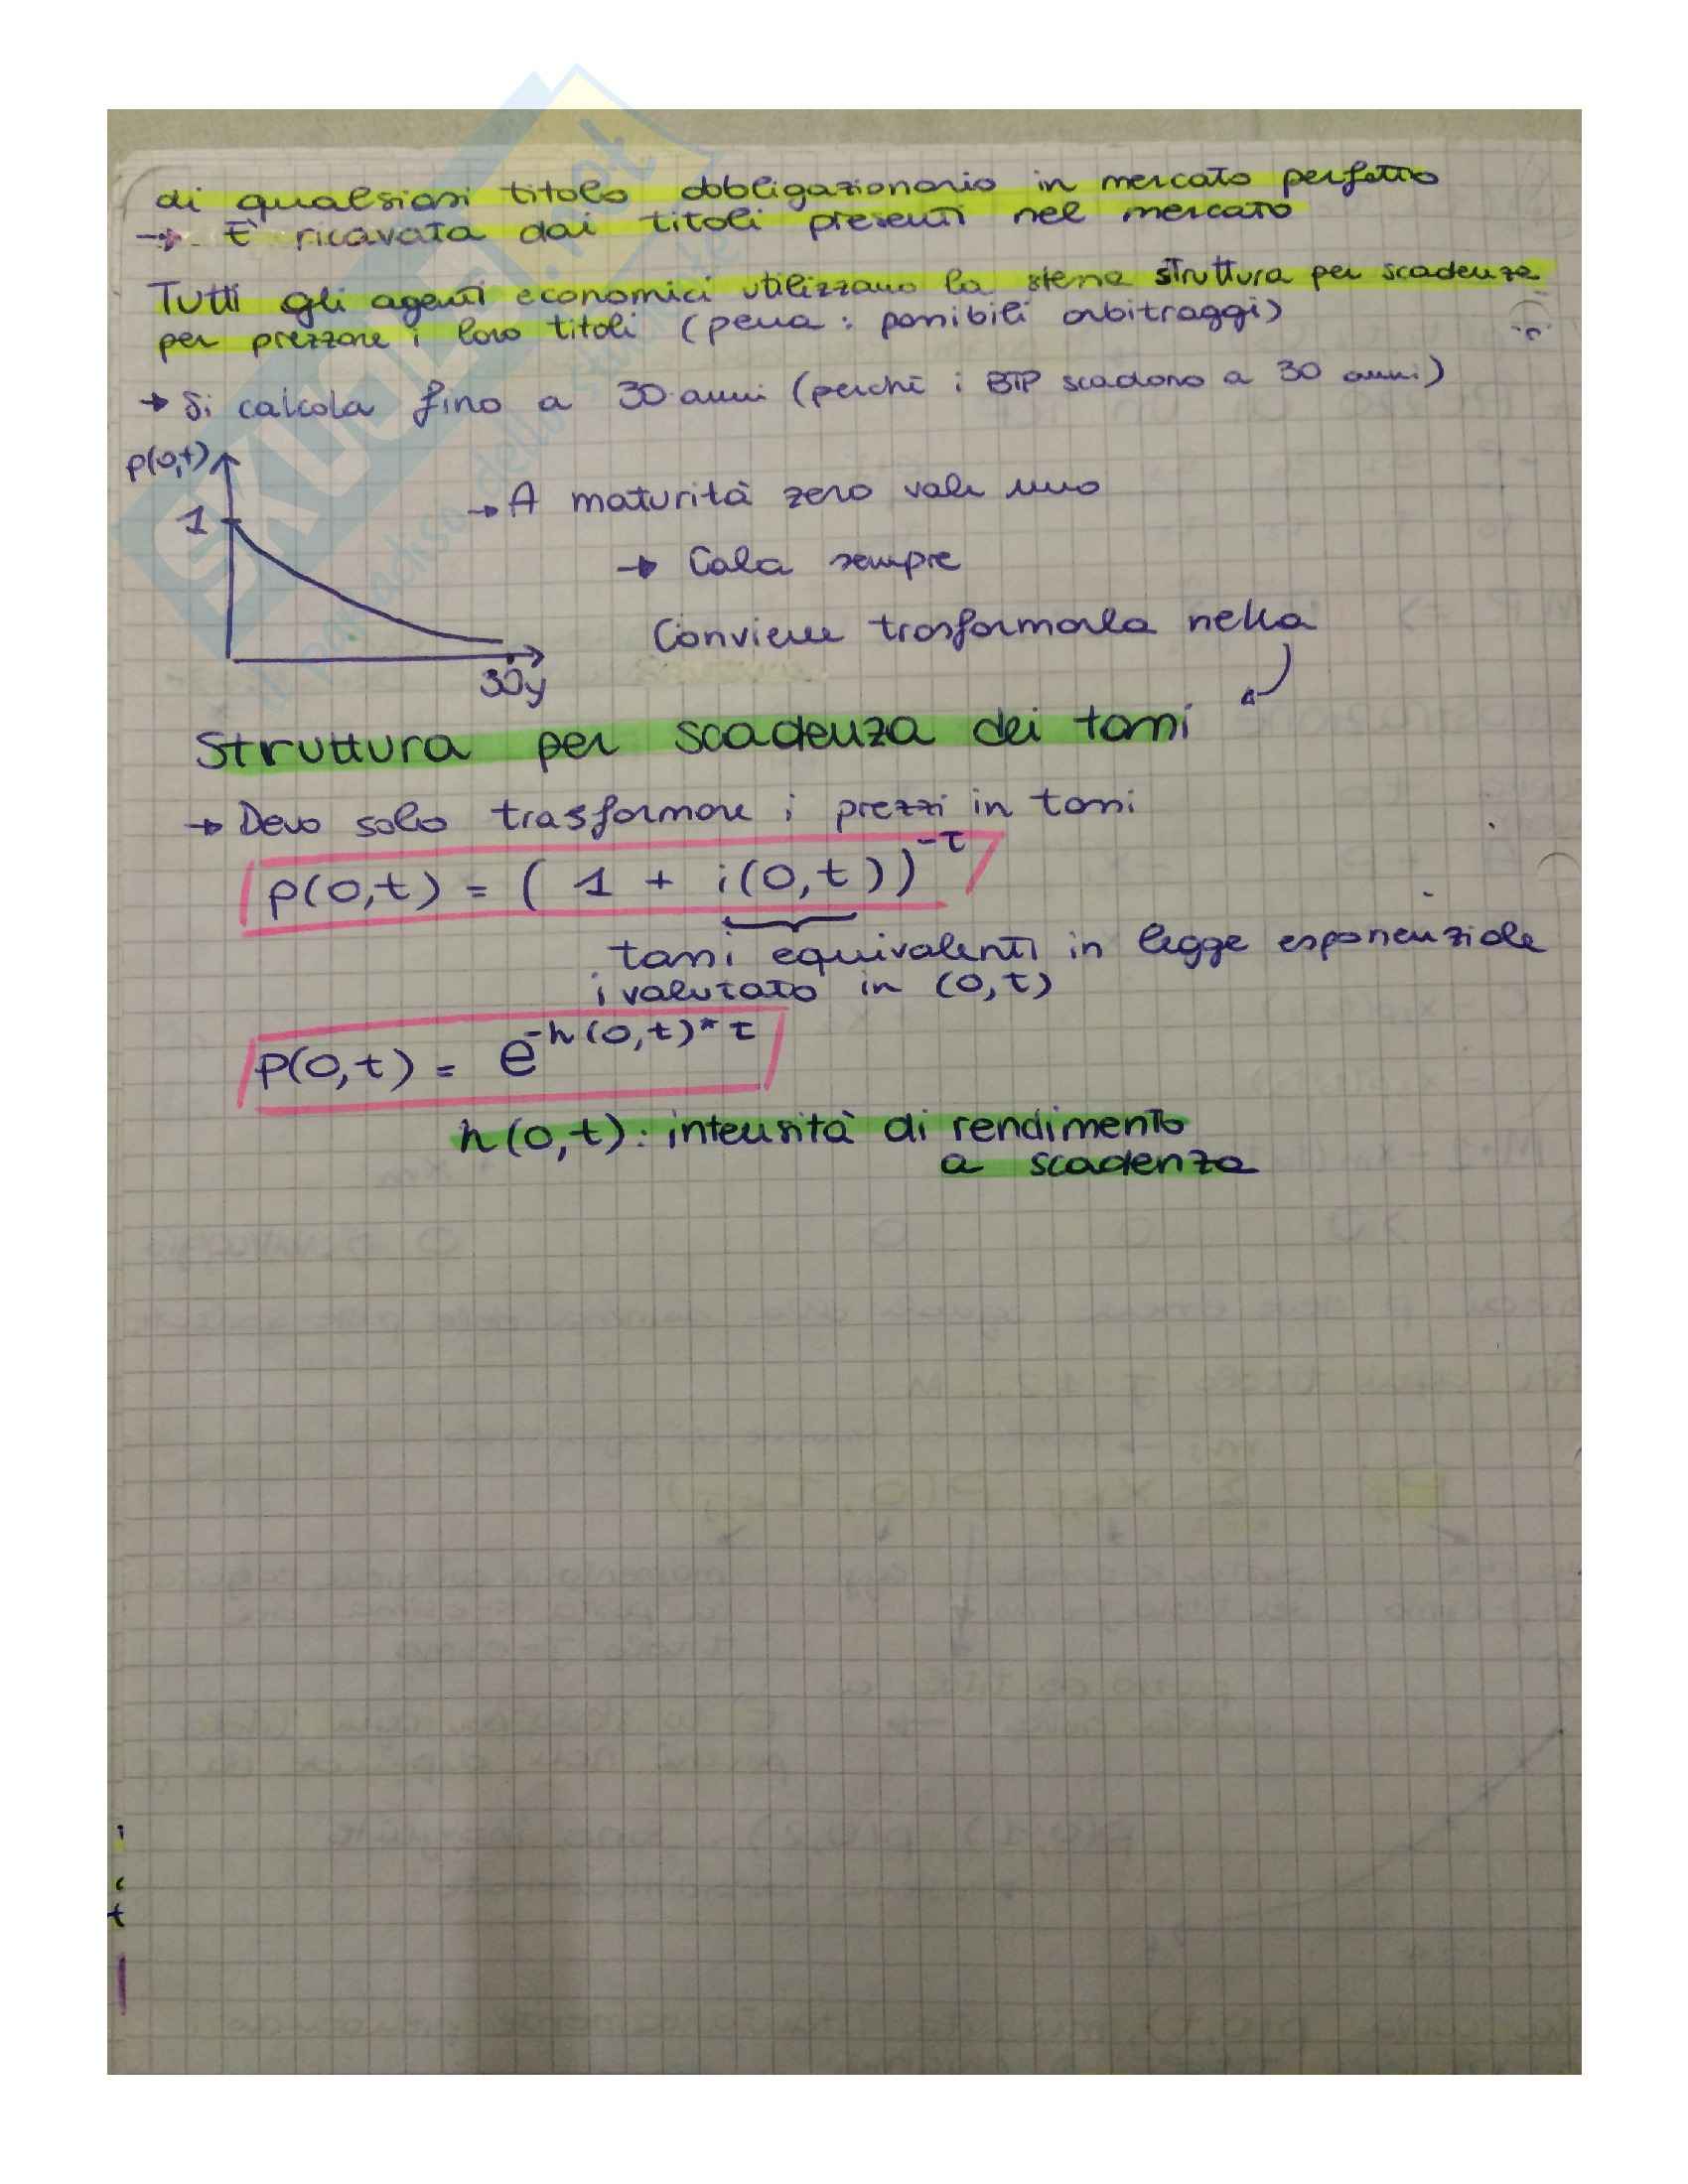 di qualsiasi titolo obbligazionario in mercato perfetto
→ È ricavata dai titoli presenti nel mercato
Tutti gli agenti economici utilizzano la stessa struttura per scadenza
per prezzare i loro titoli (pena: possibili arbitraggi)
→ Si calcola fino a 30 anni (perché i BTP scadono a 30 anni)
p(0,t)
1
→ A maturità zero vale uno
→ Cala sempre
Conviene trasformarla nella
30y
Struttura per scadenza dei tassi
→ Devo solo trasformare i prezzi in tassi
p(0,t) = ( 1 + i(0,t))^-τ
tassi equivalenti in legge esponenziale
i valutato in (0,t)
p(0,t) = e^-h(0,t)*τ
h(0,t): intensità di rendimento
a scadenza